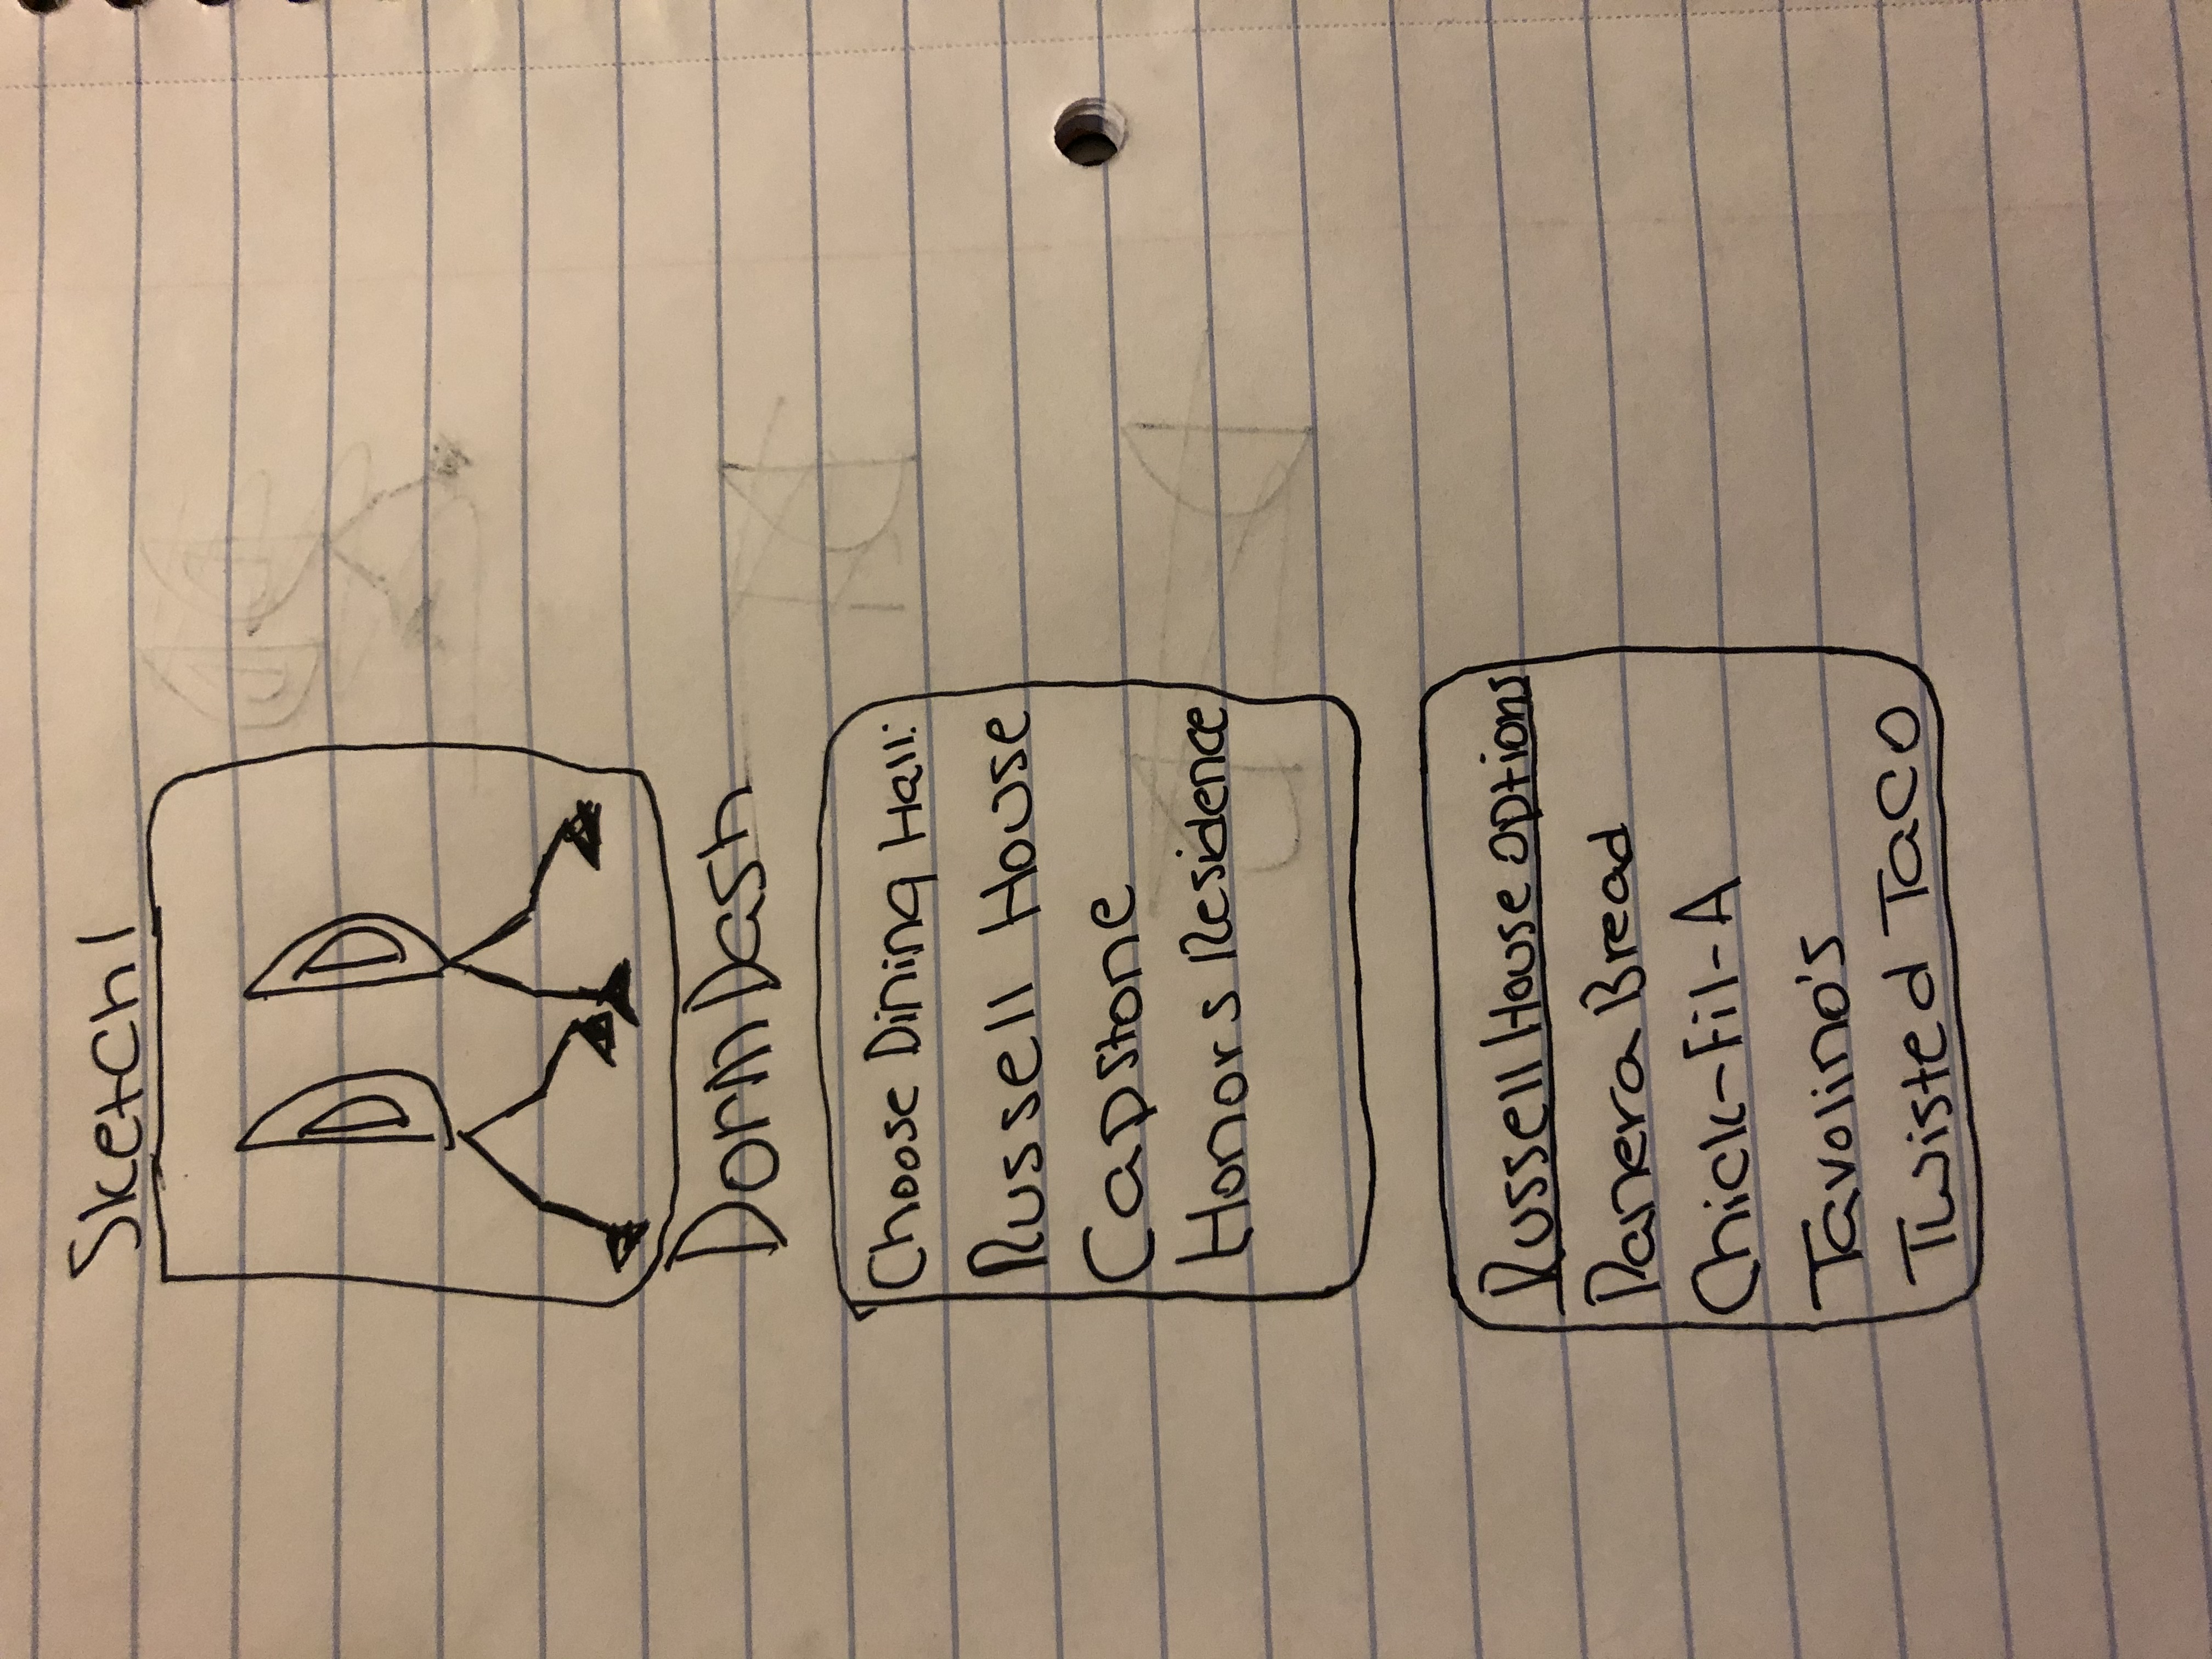 Sketch 1
D D
Dorm Dash
Choose Dining Hall:
Russell House
Capstone
Honors Residence
Russell House options
Panera Bread
Chick-Fil-A
Tavolino's
Twisted Taco